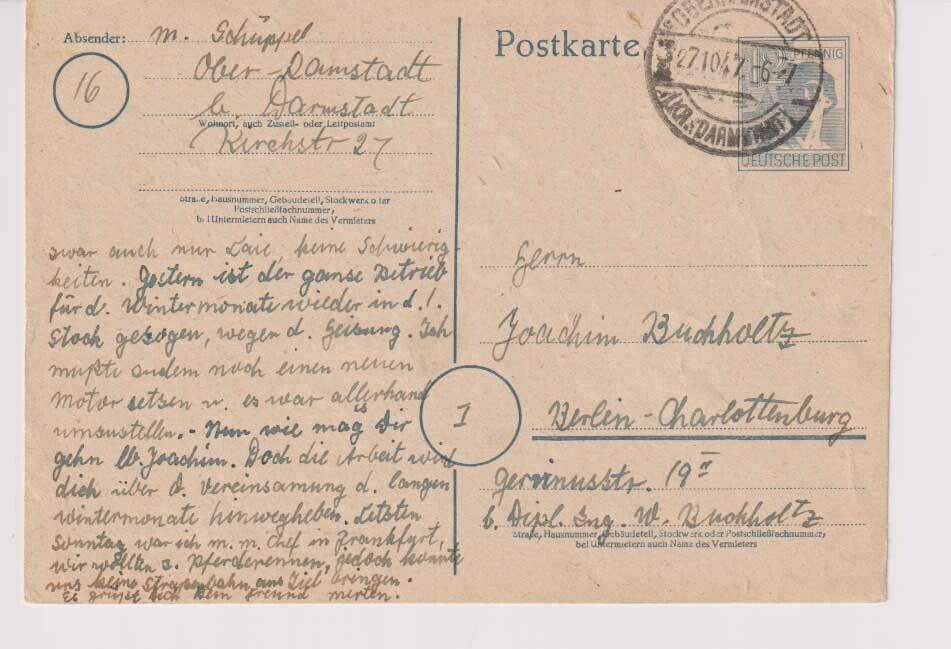 Absender: M. Schüppel
Ober-Damstadt
b. Darmstadt
Wohnort, auch Zustell- oder Leitpostamt
Kirchstr 27
16
Straße, Hausnummer, Gebäudeteil, Stockwerk oder
Postschließfachnummer,
bei Untermietern auch Name des Vermieters
zwar auch nur Laie, keine Schwierig
keiten. Gestern ist der ganse Betrieb
für d. Wintermonate wieder in d. 1.
Stock gezogen, wegen d. Heizung. Ich
mußte zudem noch einen neuen
Motor setzen u. es war allerhand
umzustellen. - Nun wie mag es Dir
gehn lb. Joachim. Doch die Arbeit wird
dich über d. Vereinsamung d. langen
Wintermonate hinwegheben. Letzten
Sonntag war ich m. m. Chef in Frankfurt,
wir wollten z. Pferderennen, jedoch konnte
uns keine Straßenbahn ans Ziel bringen.
Es grüßt Dich Dein Freund
Postkarte
27.10.47. 6-7
PFENNIG
DEUTSCHE POST
Herrn
Joachim Buchholtz
I
Berlin-Charlottenburg
Gervinusstr. 19 II
b. Dipl. Ing. W. Buchholtz
Straße, Hausnummer, Gebäudeteil, Stockwerk oder Postschließfachnummer,
bei Untermietern auch Name des Vermieters